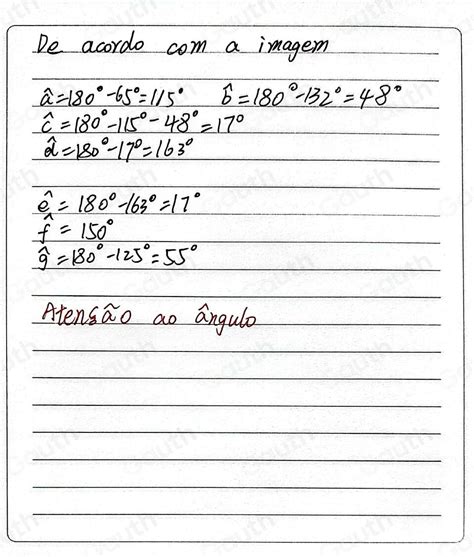 De acordo com a imagem
â=180°-65°=115° b̂=180°-132°=48°
ĉ=180°-115°-48°=17°
d̂=180°-17°=163°
ê=180°-163°=17°
f̂=150°
ĝ=180°-125°=55°
Atensão ao ângulo